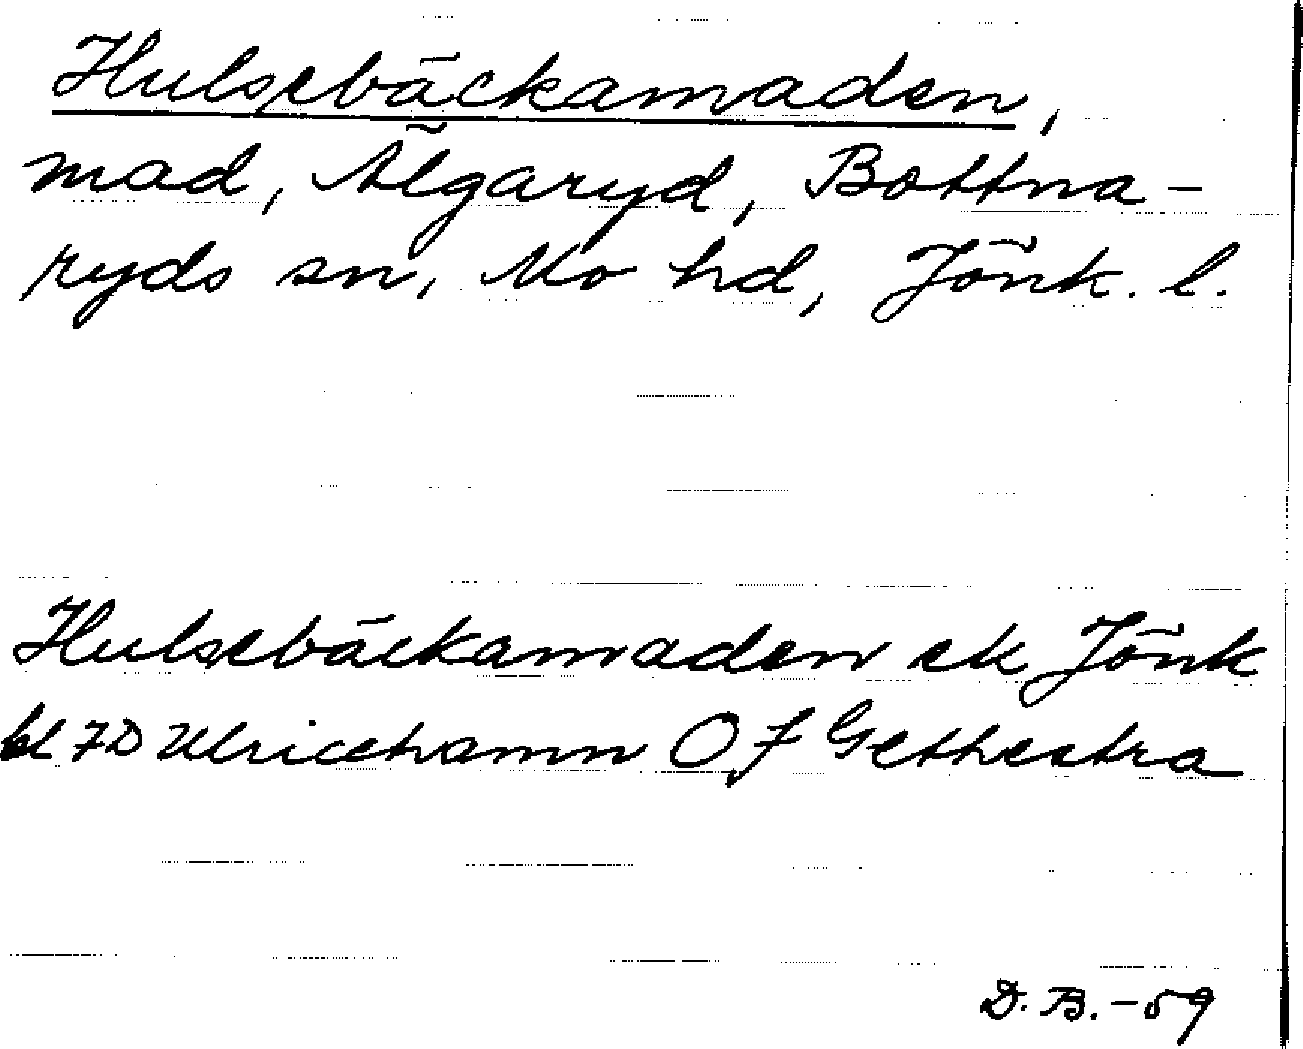 Hulsebäckamaden,
mad, Älgaryd, Bottna-
ryds sn, Mo hd, Jönk. l.
Hulsebäckamaden ek Jönk
bl 7D Ulricehamn O, F Gethestra
D. B. - 59